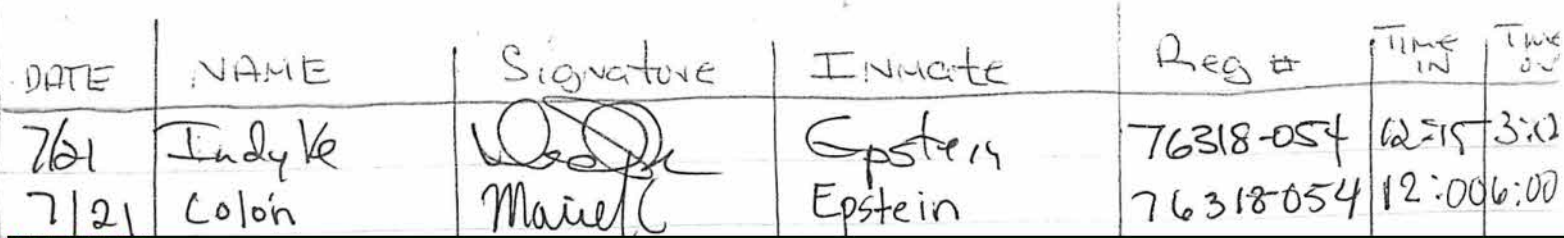 DATE NAME Signature Inmate Reg # TIME IN Time
7/21 Indyke Epstein 76318-054 12:15
7/21 Colón Mariel C Epstein 76318-054 12:00 6:00